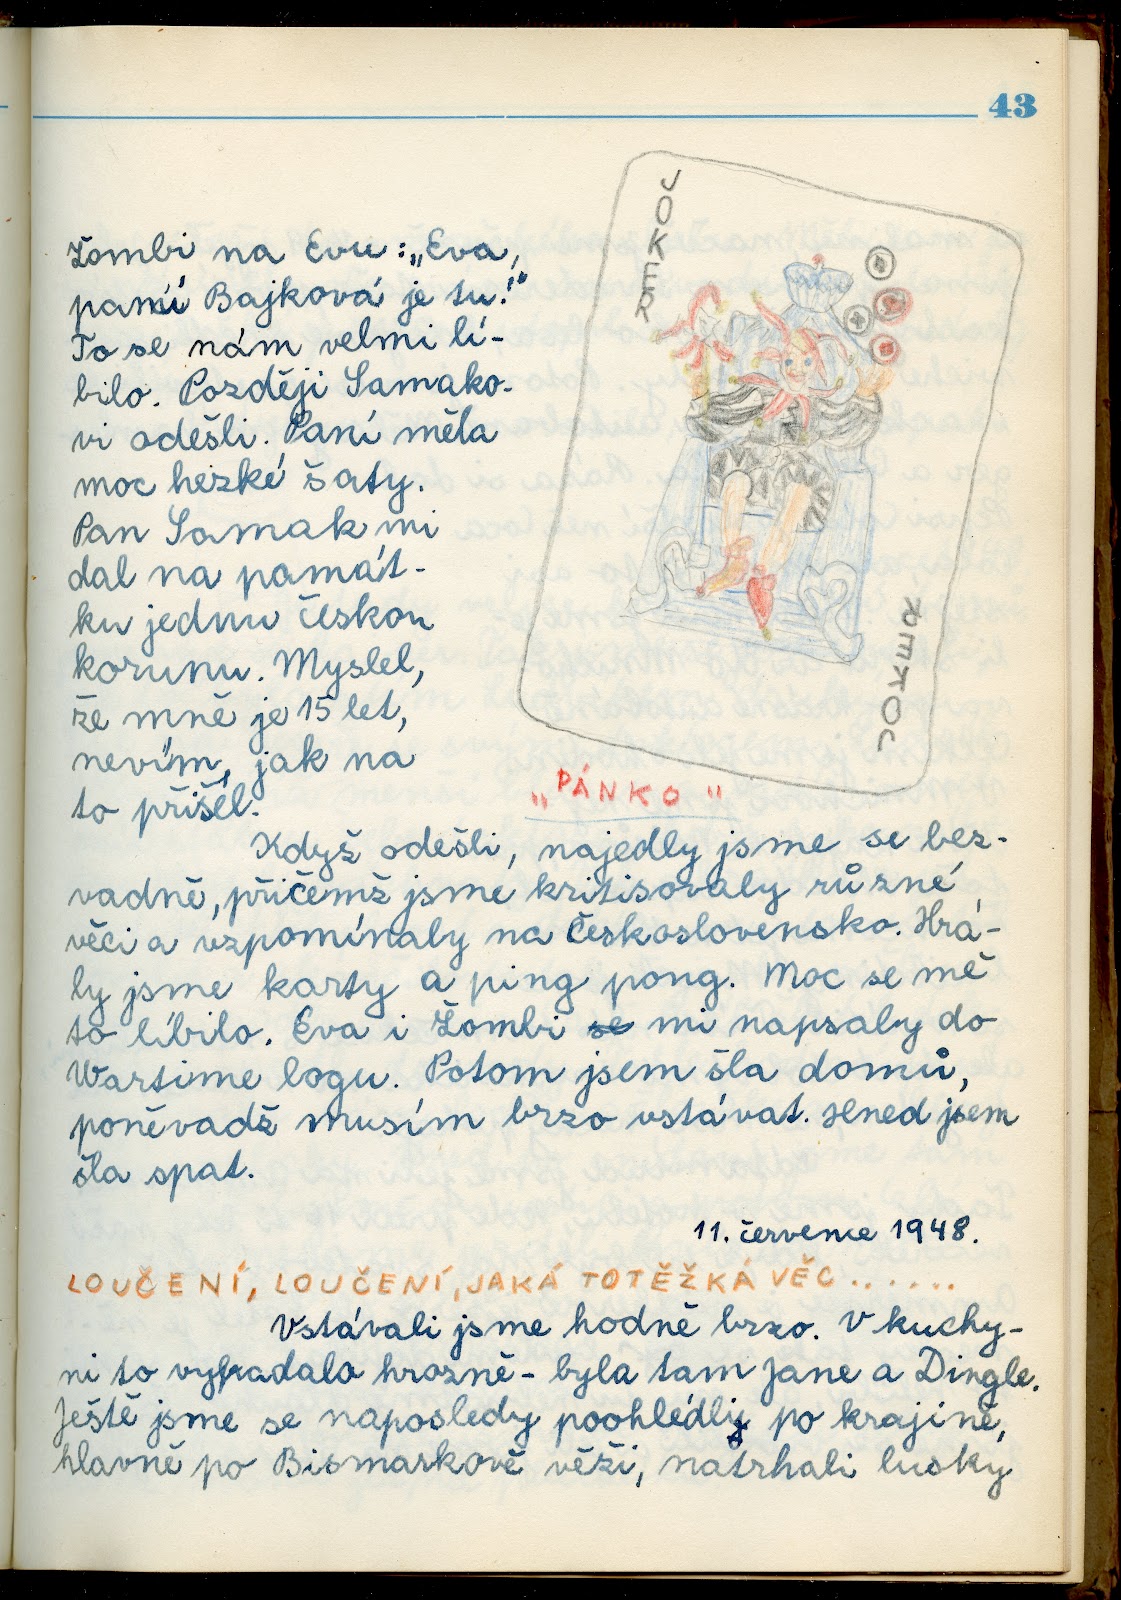 43
JOKER
Zombi na Evu: „Eva,
paní Bajková je tu!“
To se nám velmi lí-
bilo. Později Samako-
vi odešli. Paní měla
moc hezké šaty.
Pan Samak mi
dal na památ-
ku jednu českou
korunu. Myslel,
že mně je 15 let,
nevím, jak na
to přišel.
JOKER
„PÁNKO"
Když odešli, najedly jsme se bez-
vadně, přičemž jsme kritisovaly různé
věci a vzpomínaly na Československo. Hrá-
ly jsme karty a ping pong. Moc se mě
to líbilo. Eva i Zombi se mi napsaly do
Wartime logu. Potom jsem šla domů,
poněvadž musím brzo vstávat. Hned jsem
šla spat.
11. července 1948.
LOUČENÍ, LOUČENÍ, JAKÁ TOTĚŽKÁ VĚC......
Vstávali jsme hodně brzo. V kuchy-
ni to vypadalo hrozně - byla tam Jane a Dingle.
Ještě jsme se naposledy poohlédli po krajině,
hlavně po Bismarkově věži, natrhali lusky